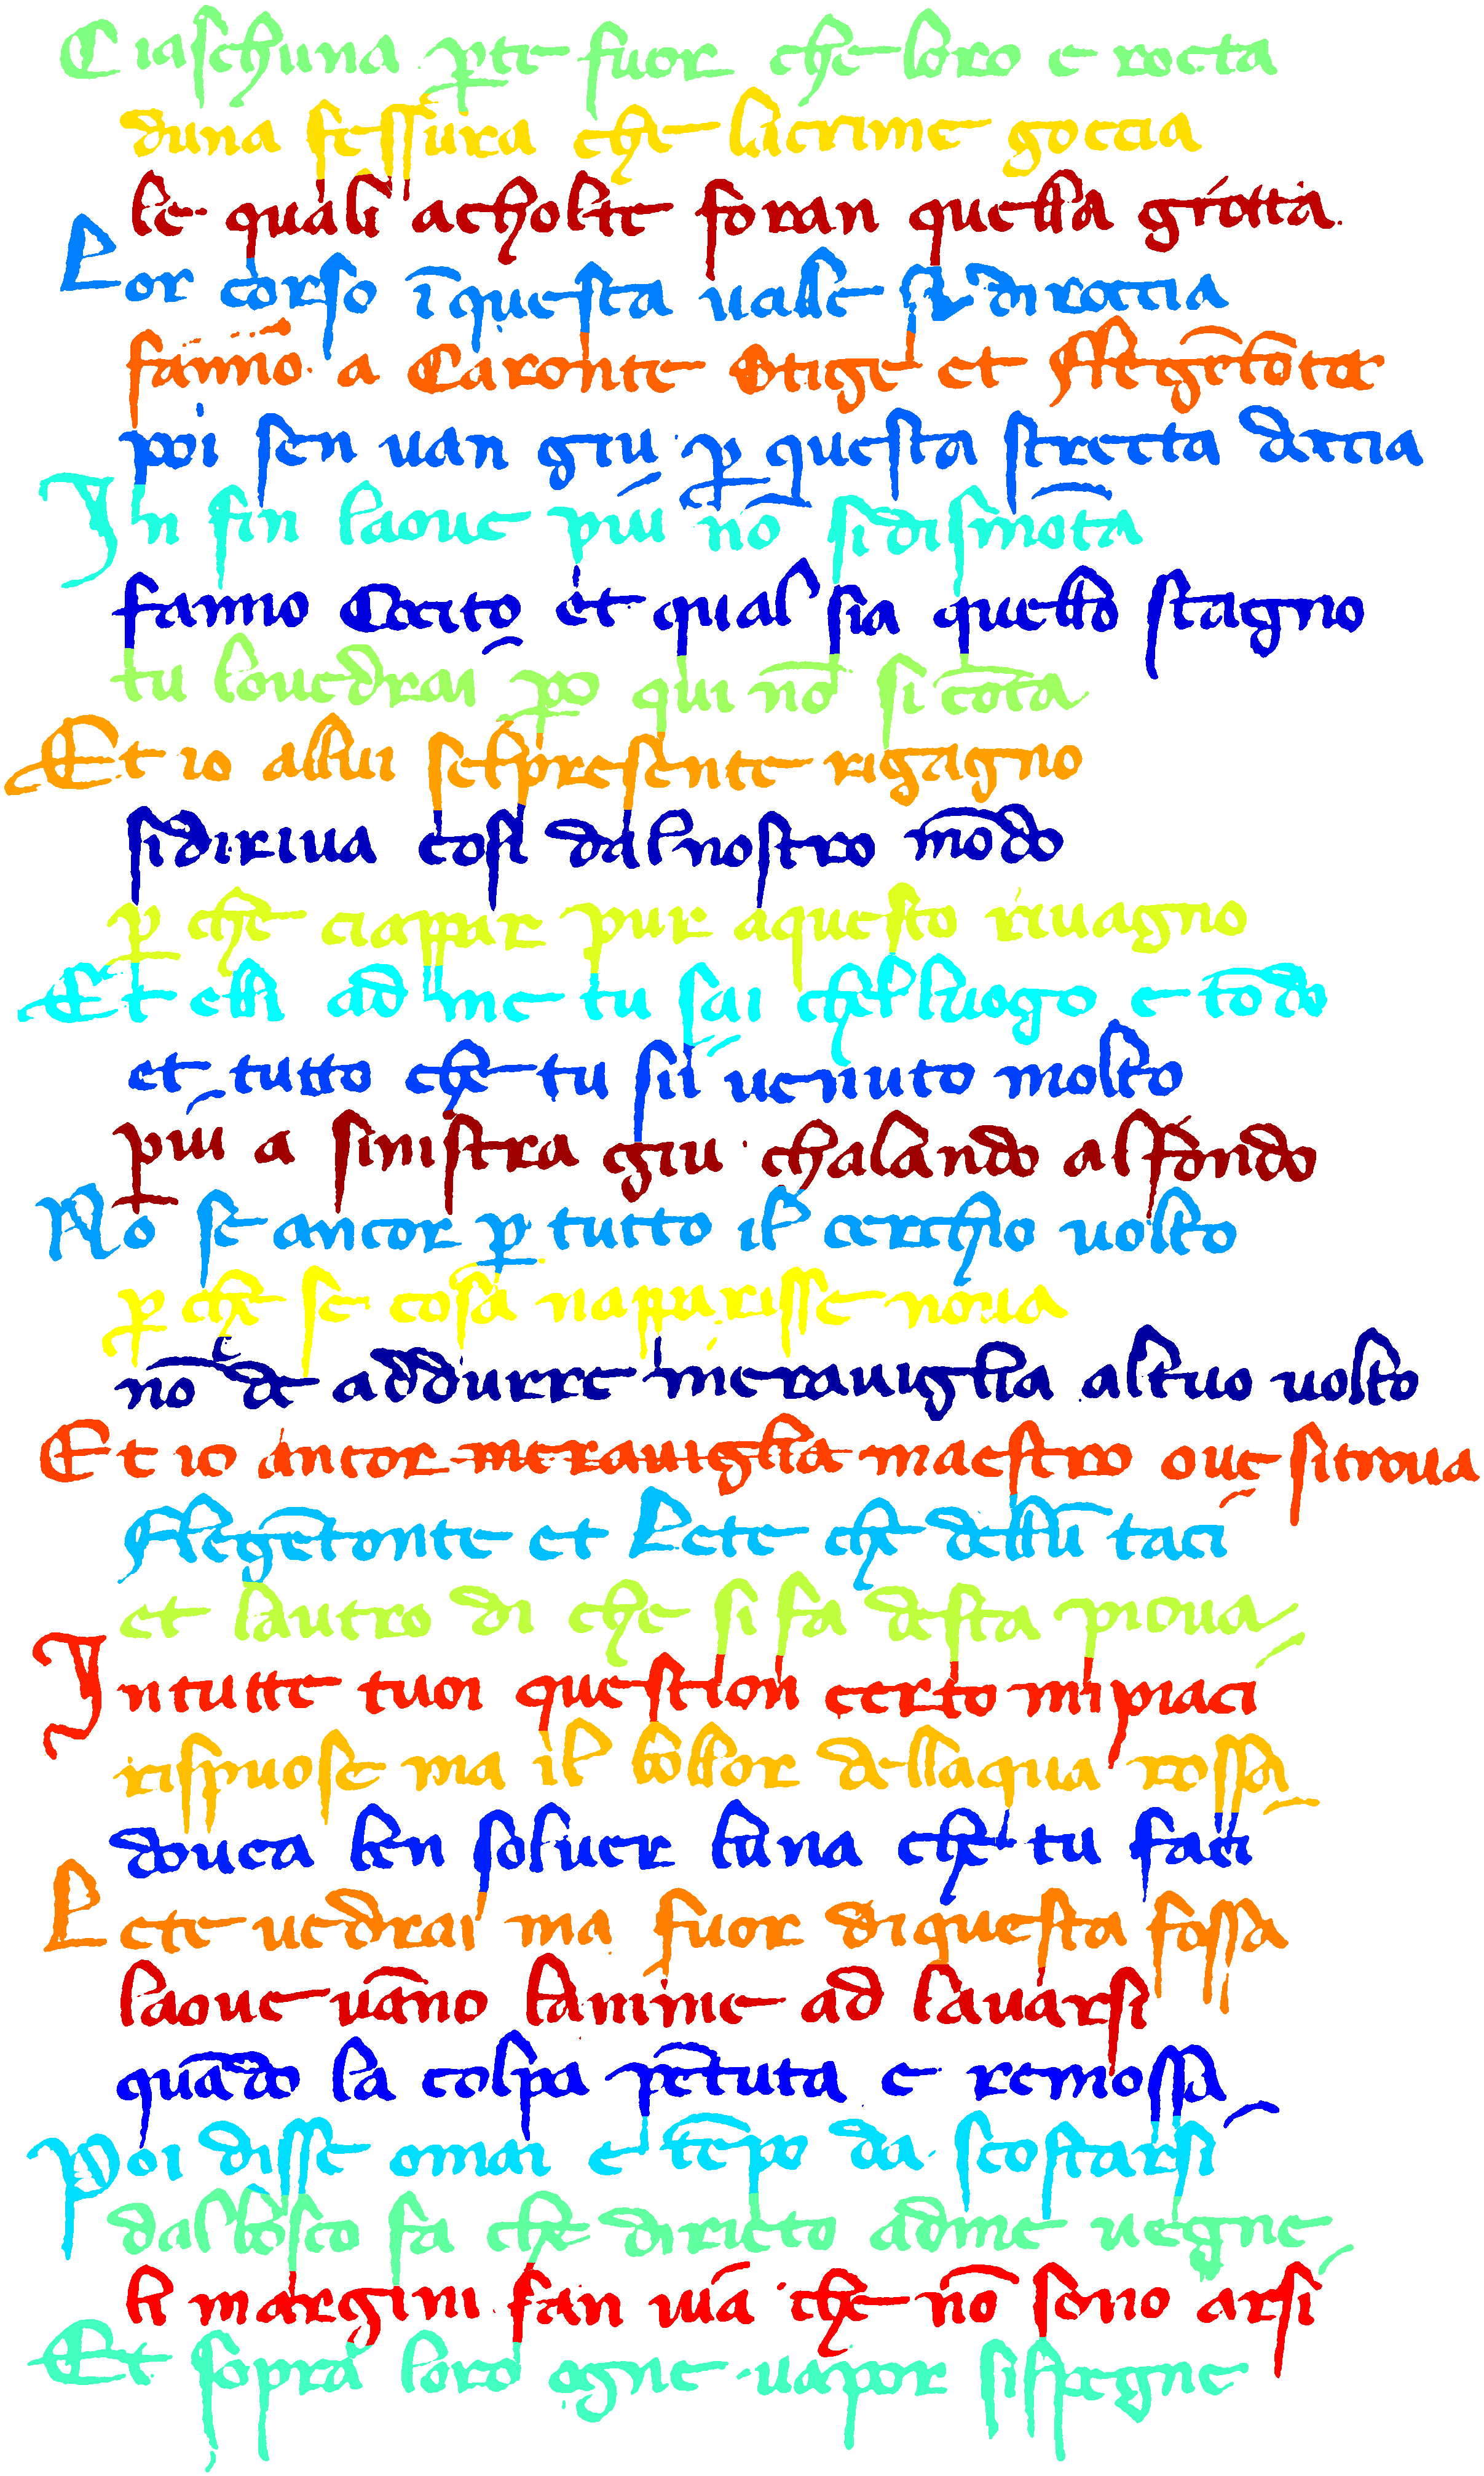 Ciaschuna ꝑte fuor che loro e rocta
duna fessura che lacrime goccia
le quali acholte foran quella grotta.
Lor corso ī questa ualle si diroccia
fanno a Caronte Stige et fflegētōta
poi sen uan giu ꝑ questa strecta doccia
In fin laoue piu nō si dismōta
fanno Cocito et qual sia quello stagno
tu louedrai ꝑo qui nō si cōta
Et io allui sel presente rigagno
si diriua cosi dal nostro mōdo
ꝑ che ciappar pur aquesto riuagno
Et elli ad me tu sai chel luogo e tōdo
et tutto che tu sii uenuto molto
piu a sinistra giu chalando al fondo
Nō se ancor ꝑ tutto il cerchio uolto
ꝑ che se cosa napparisse noua
nō de addurre merauiglia al tuo uolto
Et io ancor merauiglia maestro oue si troua
fflegētonte et Lete che dellū taci
et lautro di che si fa desta pioua
In tutte tuoi question certo mi piaci
rispuose ma il bollor dellaqua rossa
douea ben soluer luna che tu faci
Lete uedrai ma fuor di questa fossa
laoue uāno lanime ad lauarsi
quādo la colpa pētuta e remossa
Poi disse omai e tēpo da scostarsi
dal bosco fa che directo adme uegne
li margini fan uia che nō sono arsi
Et sopra loro ogne uapor si spegne